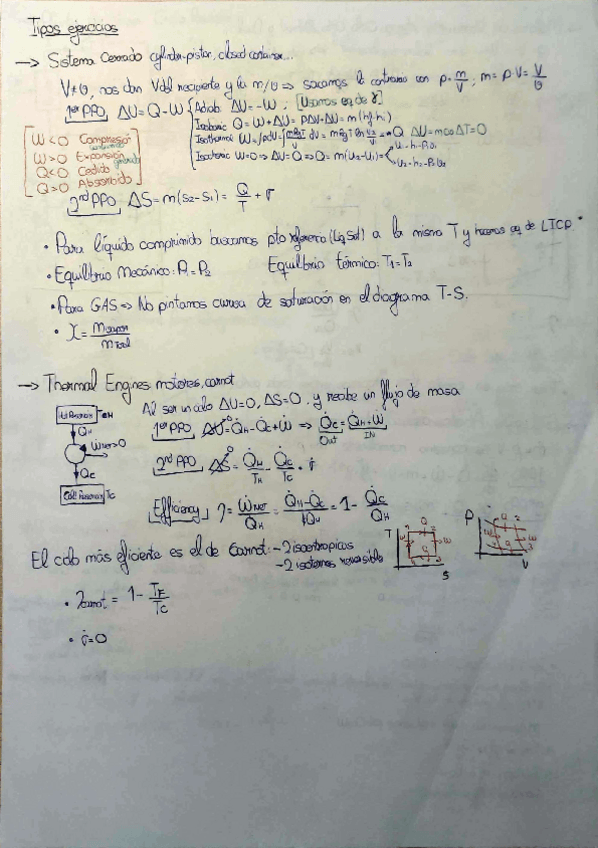 Tipos ejercicios
→ Sistema Cerrado cylinder-piston, closed container...
V≠0, nos dan V del recipiente y la m/υ ⇒ sacamos lo contrario con ρ = m/V, m = ρ·V = V/υ
1er PPO ΔU = Q - W
Adiab. ΔU = -W ; [Usamos eq de γ]
Isobaric Q = W + ΔU = PΔV + ΔU = m(hf - hi)
Isothermal
Isotoric W=0 ⇒ ΔU = Q ⇒ Q = m(U2 - U1) =
W < 0 Compresión
W > 0 Expansión
Q < 0 Cedido
Q > 0 Absorbido
2nd PPO ΔS = m(s2 - s1) = Q/T + σ
• Para líquido comprimido buscamos pto referencia (Liq Sat) a la misma T y hacemos eq de LICP *
• Equilibrio Mecánico: P1 = P2 Equilibrio térmico: T1 = T2
• Para GAS ⇒ No pintamos curva de saturación en el diagrama T-S.
• X = mvapor/mtotal
→ Thermal Engines motores, carnot
Al ser un ciclo ΔU=0, ΔS=0, y recibe un flujo de masa
Hot Reservoir TH
1er PPO ΔU = Q̇H - Q̇C + Ẇ ⇒ Q̇C = Q̇H + Ẇ
Out IN
QH
Ẇnet > 0
QC
Cold Reservoir TC
2nd PPO ΔS = Q̇H/TH - Q̇C/TC + σ̇
Efficiency η = ẆNET/Q̇H = Q̇H - Q̇C/Q̇H = 1 - Q̇C/Q̇H
El ciclo más eficiente es el de Carnot: - 2 isoentropicos
- 2 isotermos reversible
T S
P V
• ηcarnot = 1 - TF/TC
• σ̇ = 0